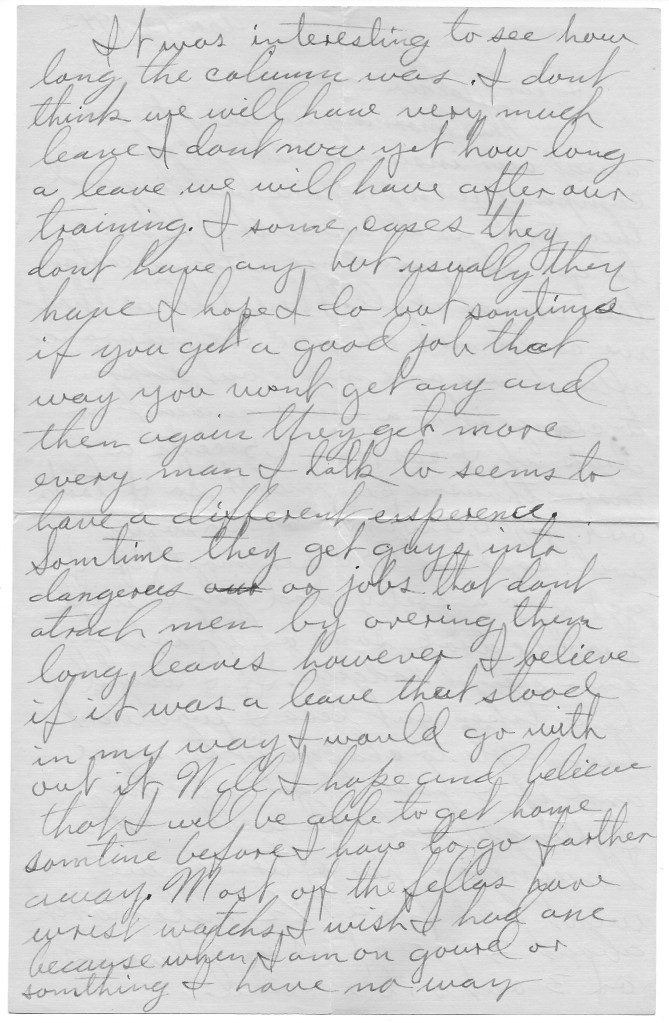 It was interesting to see how
long the column was. I dont
think we will have very much
leave I dont now yet how long
a leave we will have after our
training. I some cases they
dont have any but usually they
have I hope I do but somtimes
if you get a good job that
way you wont get any and
then again they get more
every man I talk to seems to
have a different ersperence.
Somtime they get guys into
dangerous our or jobs that dont
atrach men by overing them
long leaves however I believe
if it was a leave that stood
in my way I would go with
out it. Well I hope and believe
that I will be able to get home
somtime before I have to go farther
away. Most of the fellas have
wrist watchs I wish I had one
because when I am on gourd or
somthing I have no way